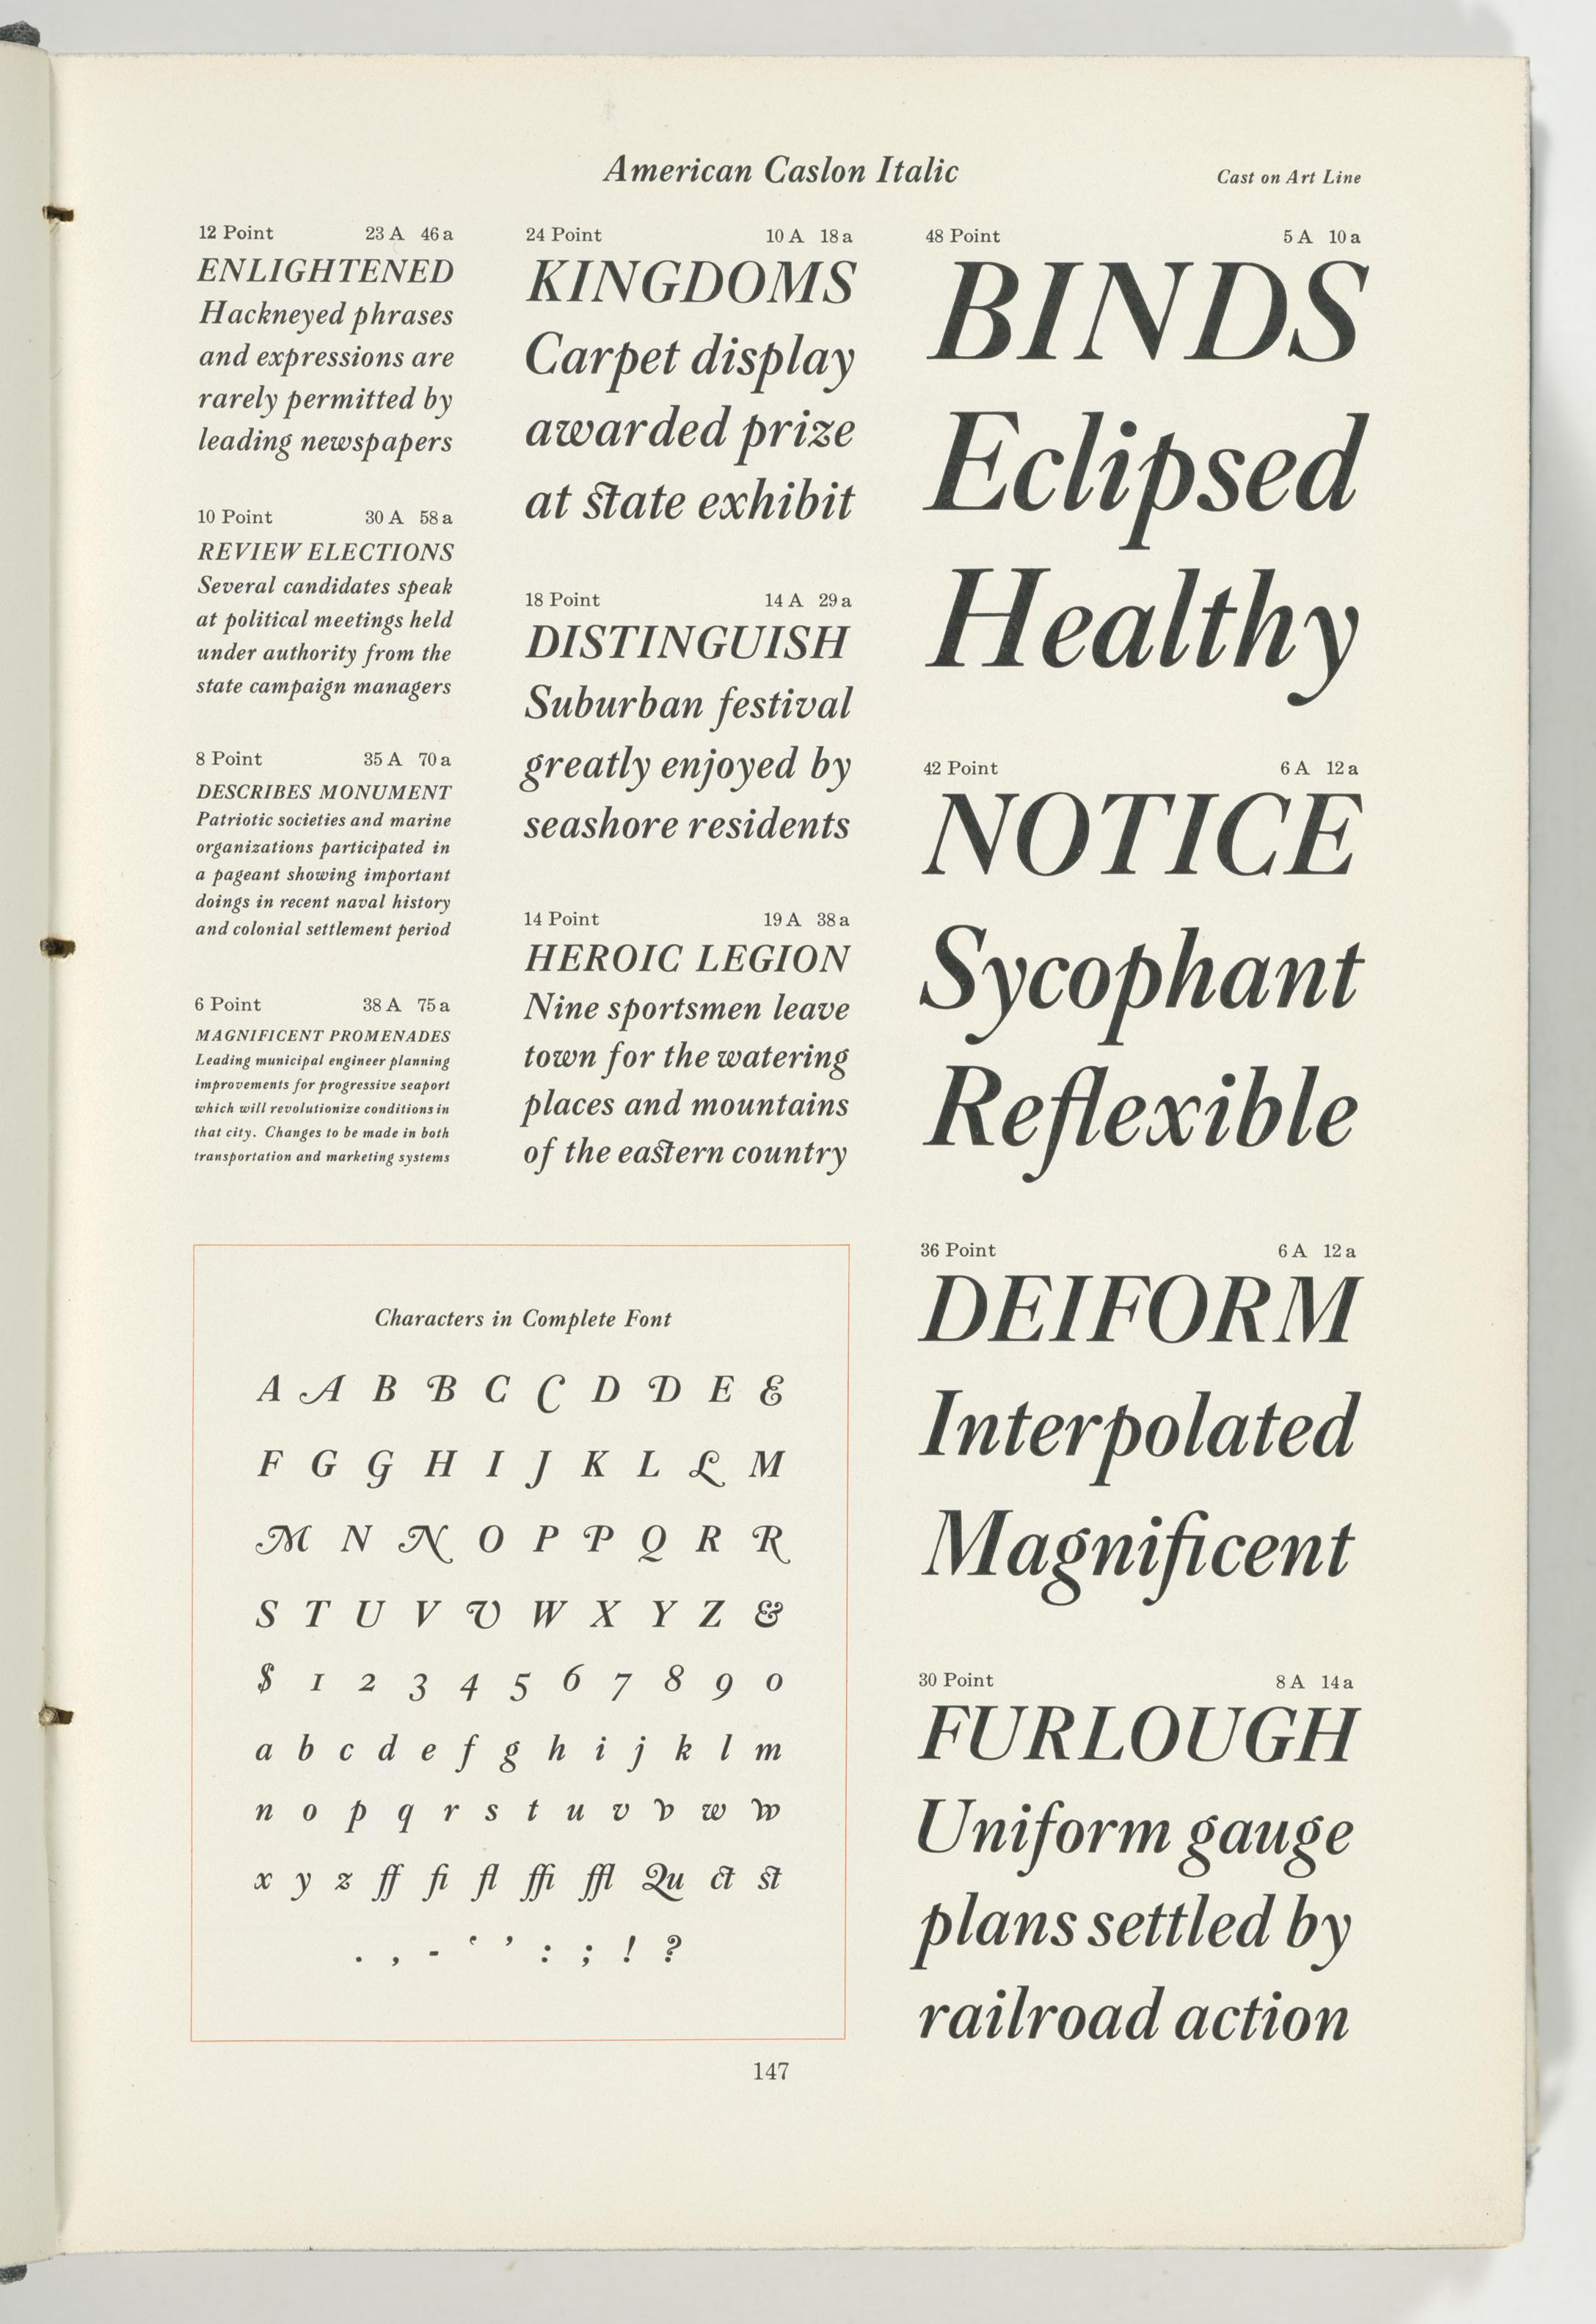 American Caslon Italic
Cast on Art Line
12 Point 23 A 46 a
ENLIGHTENED
Hackneyed phrases
and expressions are
rarely permitted by
leading newspapers
10 Point 30 A 58 a
REVIEW ELECTIONS
Several candidates speak
at political meetings held
under authority from the
state campaign managers
8 Point 35 A 70 a
DESCRIBES MONUMENT
Patriotic societies and marine
organizations participated in
a pageant showing important
doings in recent naval history
and colonial settlement period
6 Point 38 A 75 a
MAGNIFICENT PROMENADES
Leading municipal engineer planning
improvements for progressive seaport
which will revolutionize conditions in
that city. Changes to be made in both
transportation and marketing systems
24 Point 10 A 18 a
KINGDOMS
Carpet display
awarded prize
at state exhibit
18 Point 14 A 29 a
DISTINGUISH
Suburban festival
greatly enjoyed by
seashore residents
14 Point 19 A 38 a
HEROIC LEGION
Nine sportsmen leave
town for the watering
places and mountains
of the eastern country
48 Point 5 A 10 a
BINDS
Eclipsed
Healthy
42 Point 6 A 12 a
NOTICE
Sycophant
Reflexible
36 Point 6 A 12 a
DEIFORM
Interpolated
Magnificent
30 Point 8 A 14 a
FURLOUGH
Uniform gauge
plans settled by
railroad action
Characters in Complete Font
A A B B C C D D E E
F G G H I J K L L M
M N N O P P Q R R
S T U V V W X Y Z &
$ 1 2 3 4 5 6 7 8 9 0
a b c d e f g h i j k l m
n o p q r s t u v v w w
x y z ff fi fl ffi ffl Qu ct st
. , - ‘ ’ : ; ! ?
147